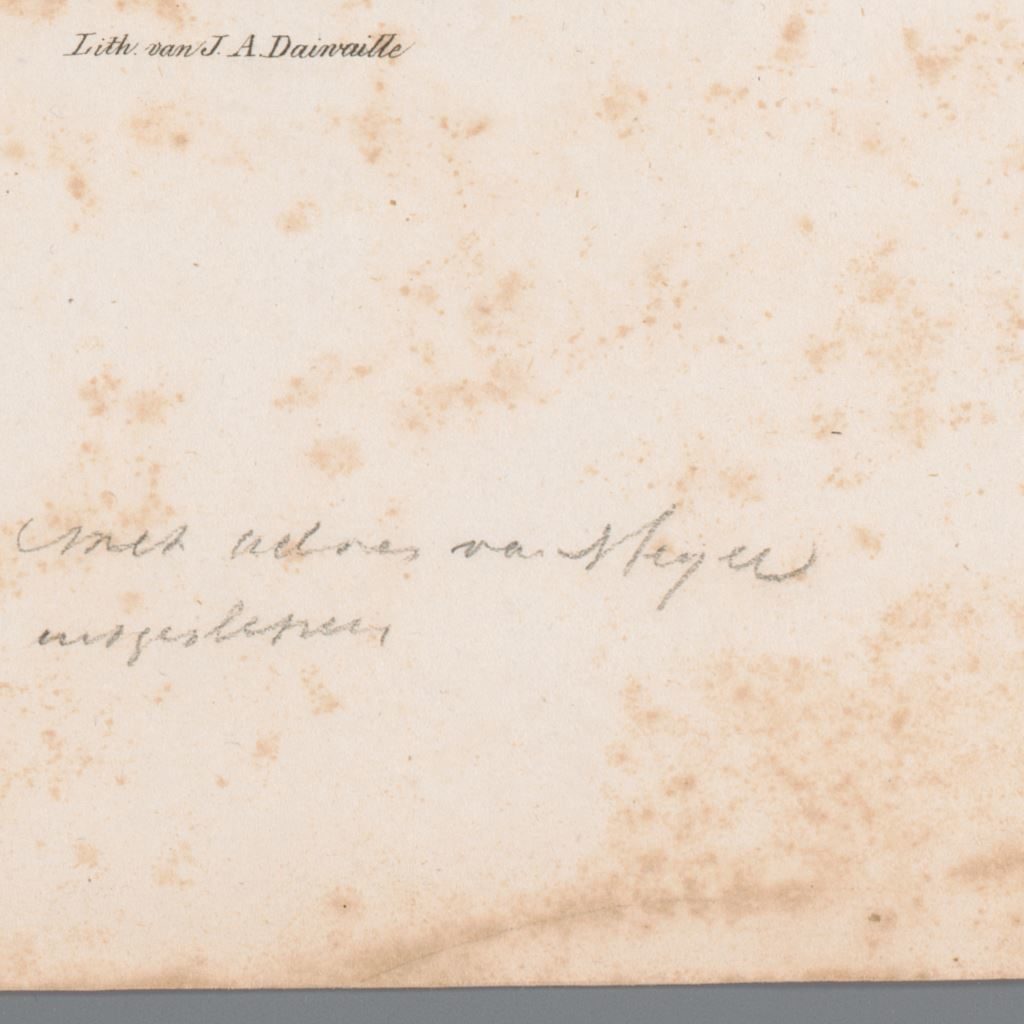 Lith. van J. A. Daiwaille
met adres van Meyer
uitgeslepen